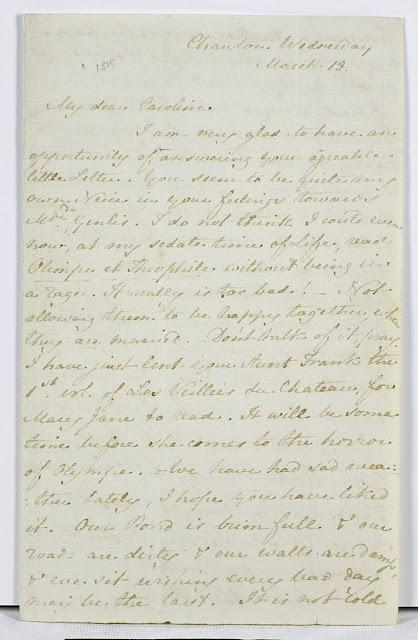 Chawton Wednesday
March 13.
1815
My dear Caroline
I am very glad to have an
opportunity of answering your agreable
little Letter. You seem to be quite my
own Neice in your feelings towards
Mde Genlis. I do not think I could even
now, at my sedate time of Life, read
Olimpe et Theophile without being in
a rage. It really is too bad! - Not
allowing them to be happy together, when
they are married. Don't talk of it, pray.
I have just lent your Aunt Frank the
1st vol. of Les Veillees du Chateau, for
Mary Jane to read. It will be some
time before she comes to the horror
of Olympe. - We have had sad wea=
=ther lately, I hope you have liked
it. - Our Pond is brimfull & our
roads are dirty & our walls are damp,
& we sit wishing every bad day
may be the last. It is not cold